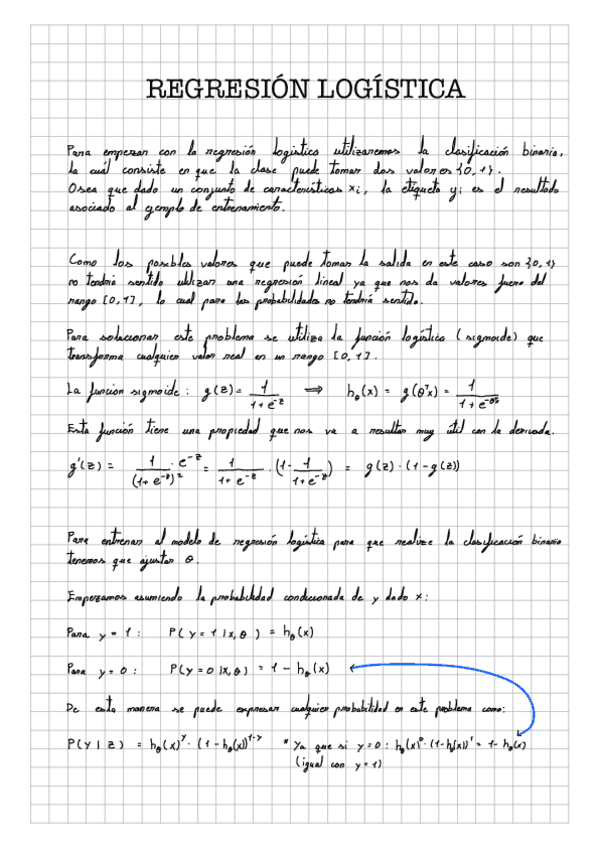 REGRESIÓN LOGÍSTICA
Para empezar con la regresión logística utilizaremos la clasificación binaria,
la cuál consiste en que la clase puede tomar dos valores {0,1}.
Osea que dado un conjunto de características xᵢ, la etiqueta yᵢ es el resultado
asociado al ejemplo de entrenamiento.
Como los posibles valores que puede tomar la salida en este caso son {0,1}
no tendría sentido utilizar una regresión lineal ya que nos da valores fuera del
rango [0,1], lo cual para las probabilidades no tendría sentido.
Para solucionar este problema se utiliza la función logística (sigmoide) que
transforma cualquier valor real en un rango [0,1].
La función sigmoide: g(z) = 1/(1+e^-z) ⟹ hθ(x) = g(θᵀx) = 1/(1+e^-θᵀx)
Esta función tiene una propiedad que nos va a resultar muy útil con la derivada.
g'(z) = 1/(1+e^-z)² · e^-z = 1/(1+e^-z) · (1 - 1/(1+e^-z)) = g(z)·(1-g(z))
Para entrenar al modelo de regresión logística para que realize la clasificación binaria
tenemos que ajustar θ.
Empezamos asumiendo la probabilidad condicionada de y dado x:
Para y = 1: P(y=1|x,θ) = hθ(x)
Para y = 0: P(y=0|x,θ) = 1 - hθ(x)
De esta manera se puede expresar cualquier probabilidad en este problema como:
P(y|z) = hθ(x)^y · (1-hθ(x))^1-y * Ya que si y=0: hθ(x)^0 · (1-hθ(x))^1 = 1-hθ(x)
(igual con y=1)